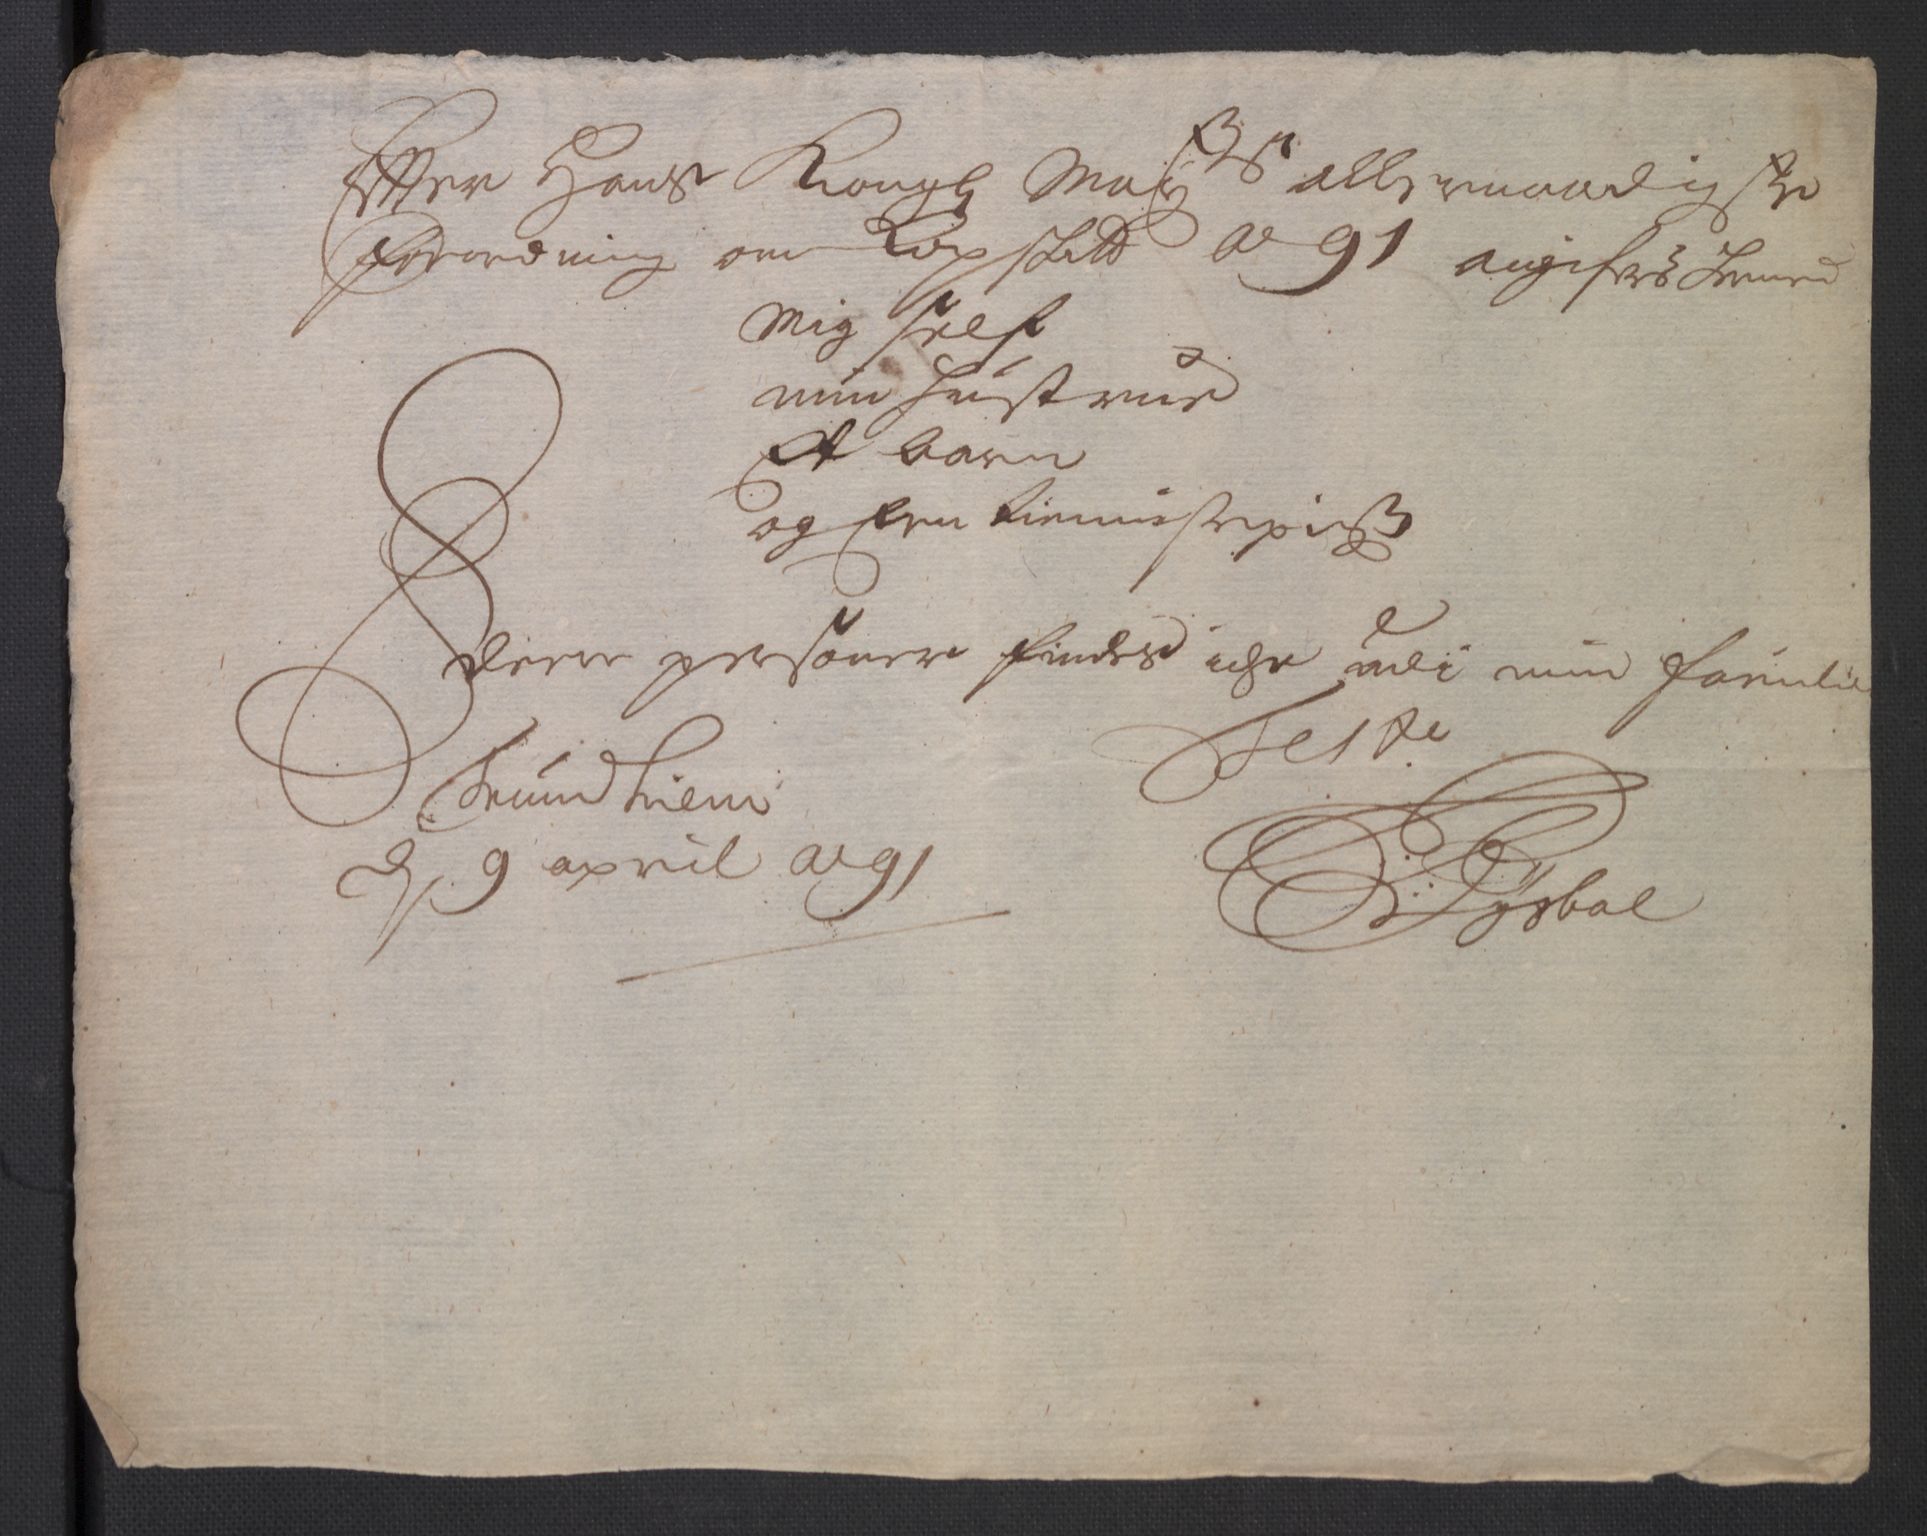 Effter Hans Kongl Mayts allernaadigste
forordning om Kopskatt Ao 91 angifvis hermed
Mig self
min hustrue
Et barn
og Een tienniste pige
Fleere personer findes iche udi min familie
Teste
Trundhiem
d. 9 april Ao 91